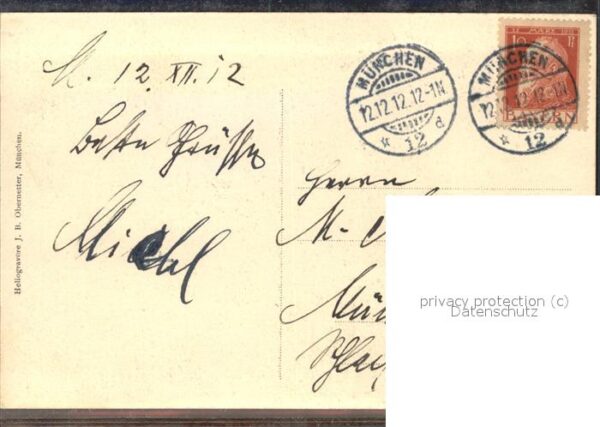 M. 12. XII. 12
Beste Grüsse
Michl
Heliogravüre J. B. Obernetter, München.
MÜNCHEN
12.12.12.12-1N
* 12 d
MÜNCHEN
12-1N
* 12 d
12 MÄRZ 1911
10 Pf
BAYERN
Herrn
M.
Mün
privacy protection (c)
Datenschutz